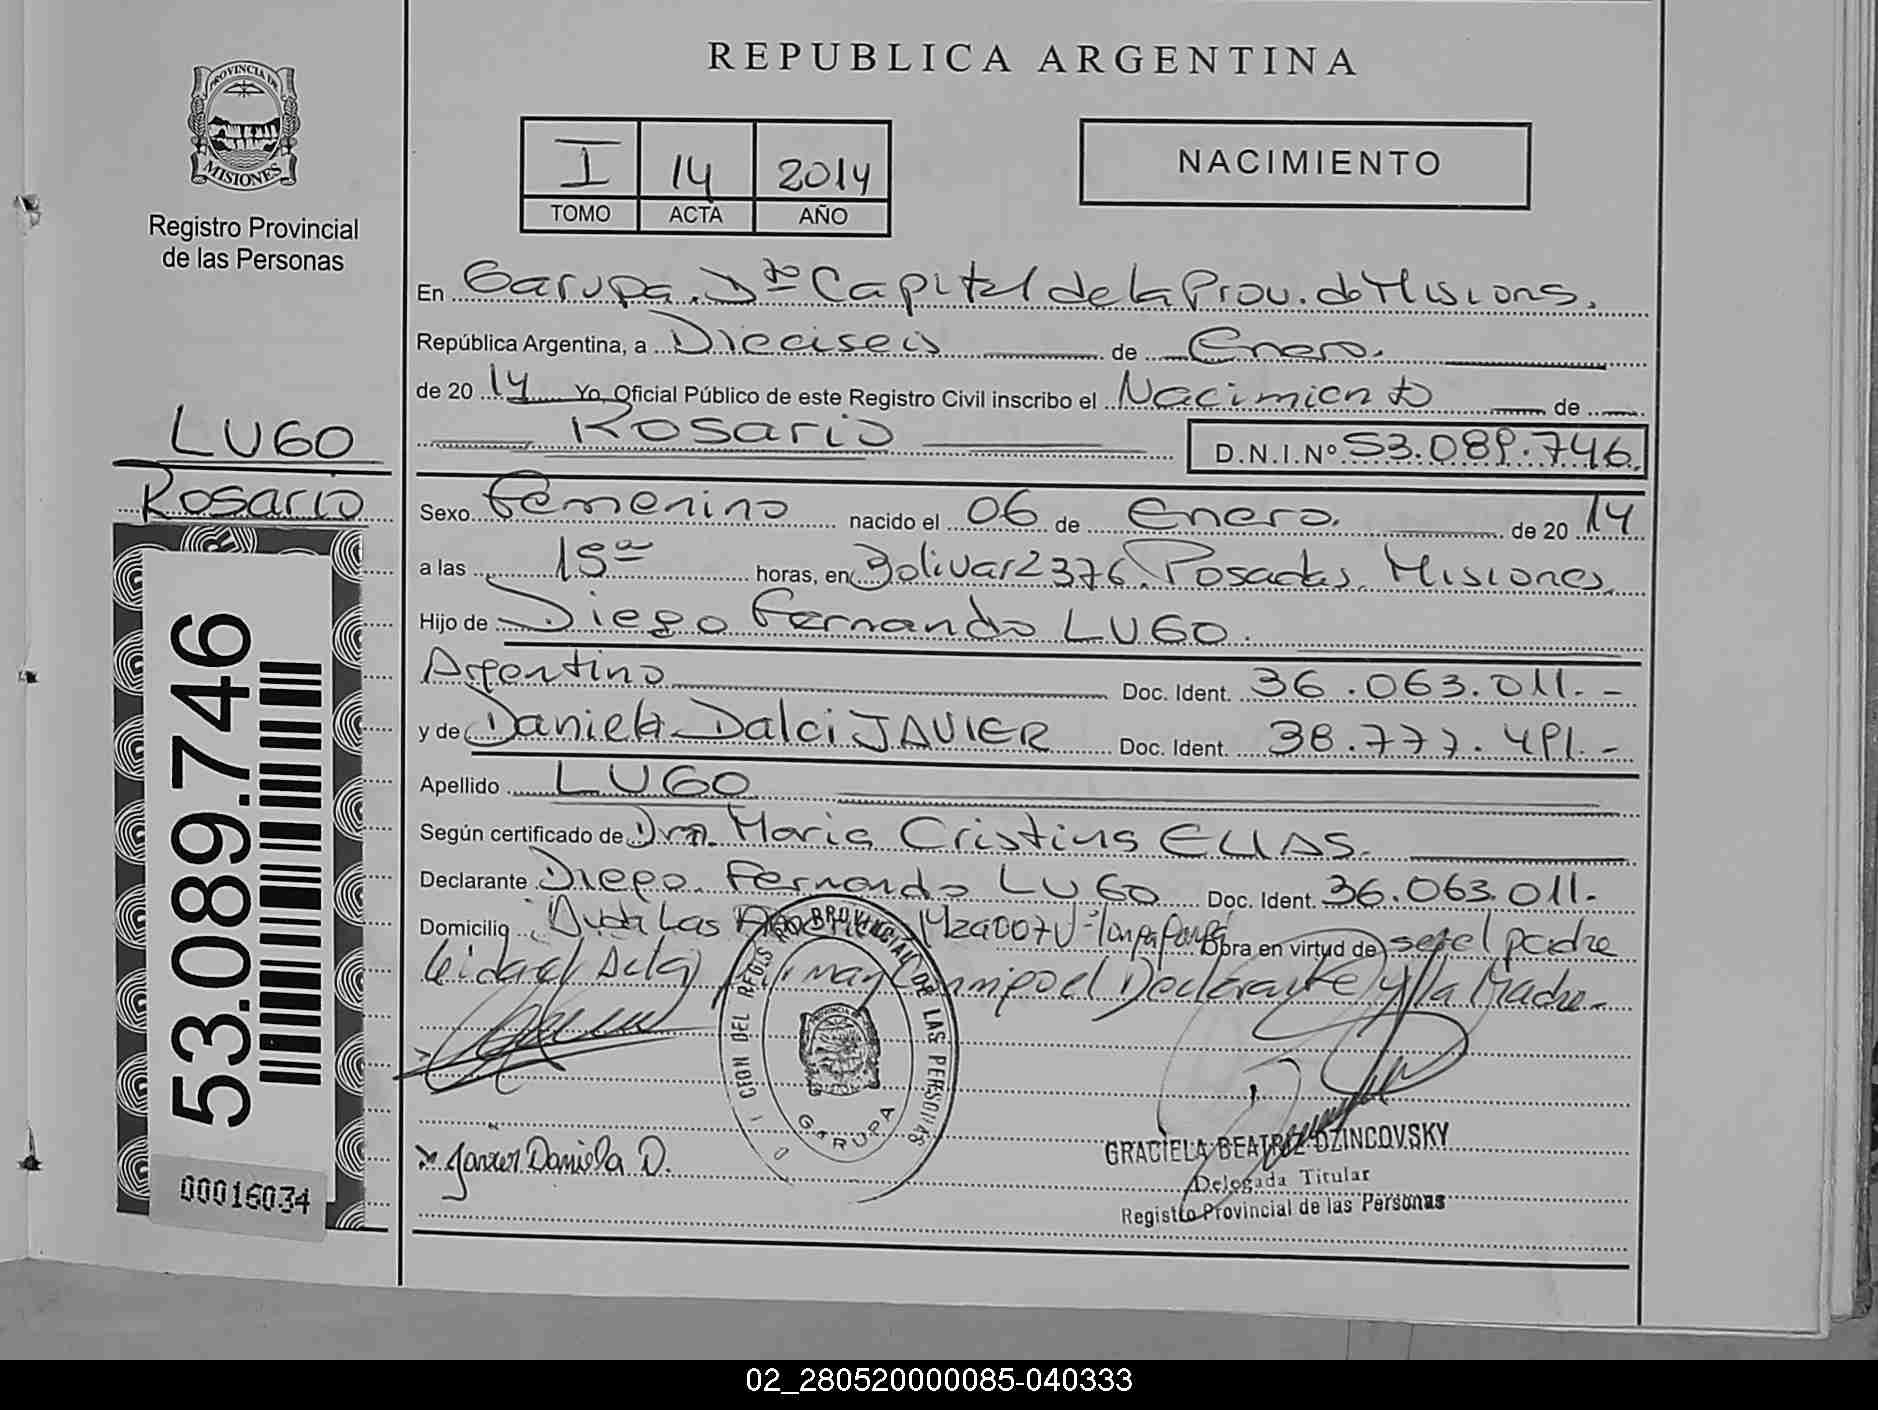 REPUBLICA ARGENTINA
PROVINCIA DE
MISIONES
Registro Provincial
de las Personas
I 14 2014
TOMO ACTA AÑO
NACIMIENTO
En Garupa. Dto Capital de la Prov. de Misiones.
República Argentina, a Dieciseis de Enero.
de 20 14 Yo, Oficial Público de este Registro Civil inscribo el Nacimiento de
Rosario D.N.I.Nº 53.089.746.
LUGO
Rosario
Sexo Femenino nacido el 06 de Enero. de 20 14
a las 15 horas, en Bolivar 2376. Posadas. Misiones.
Hijo de Diego Fernando LUGO.
Argentino Doc. Ident. 36.063.011.-
y de Daniela Dalci JAVIER Doc. Ident. 38.777.491.-
Apellido LUGO
Según certificado de Dra. Maria Cristina ELIAS.
Declarante Diego Fernando LUGO Doc. Ident. 36.063.011.-
Domicilio Avda Las Obra en virtud de ser el padre
leida el Acta el Declarante y la Madre-
53.089.746
00016034
REGIS PROVINCIAL DE LAS PERSONAS
GARUPA
Javier Daniela D.
GRACIELA BEATRIZ DZINCOVSKY
Delegada Titular
Registro Provincial de las Personas
02_280520000085-040333